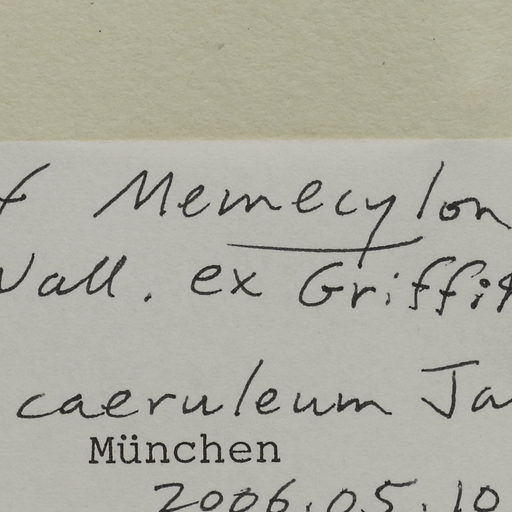 Memecylon
Wall. ex Griffi
caeruleum Ja
München
2006.05.10